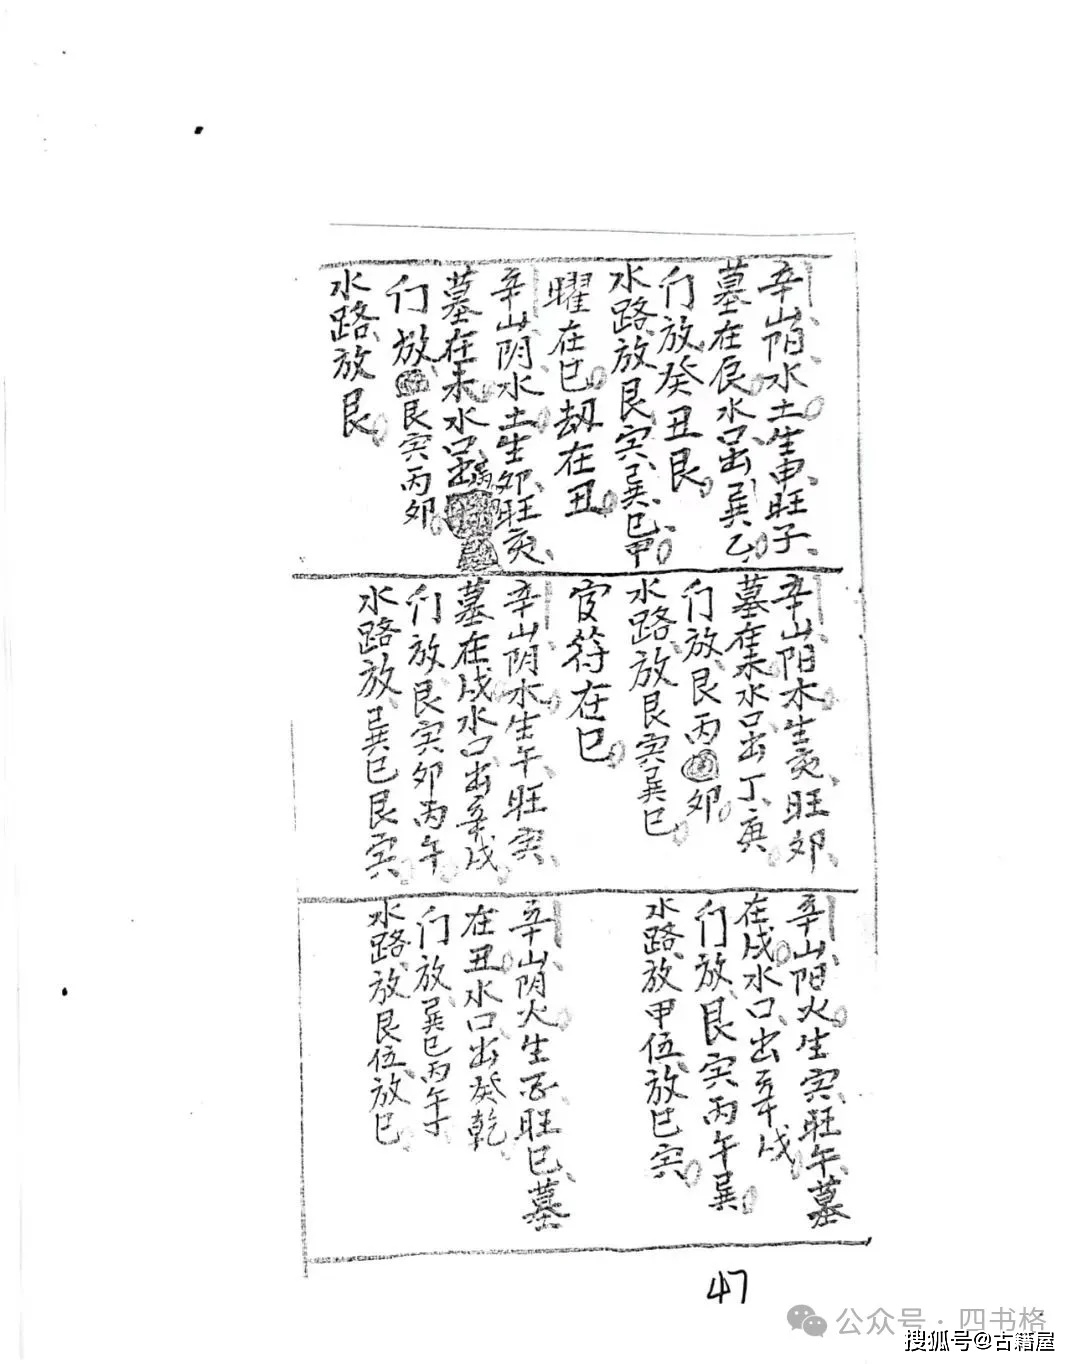 辛山阳水土生申旺子
墓在辰水口出巽乙
们放癸丑艮
水路放艮寅巽巳甲
曜在巳劫在丑
辛山阴水土生卯旺亥
墓在未水口出
们放艮寅丙卯
水路放艮
辛山阳木生亥旺卯
墓在未水口出丁庚
们放艮丙卯
水路放艮寅巽巳
官符在巳
辛山阴木生午旺寅
墓在戌水口出辛戌
们放艮寅卯丙午
水路放巽巳艮寅
辛山阳火生寅旺午墓
在戌水口出辛戌
们放艮寅丙午巽
水路放甲伍放巳寅
辛山阴火生酉旺巳墓
在丑水口出癸乾
们放巽巳丙午丁
水路放艮伍放巳
47
公众号·四书格
搜狐号@古籍屋